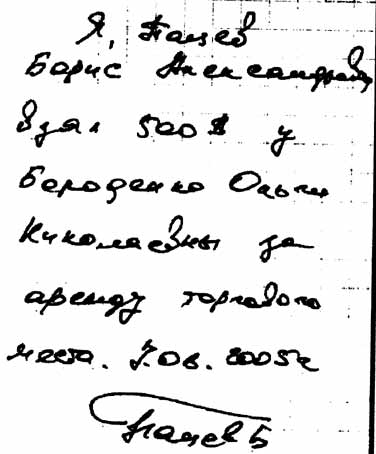 Я, Пацев
Борис Александрович
взял 500 $ у
Бероденко Ольги
Николаевны за
аренду торгового
места. 7.06.2005г
Пацев Б